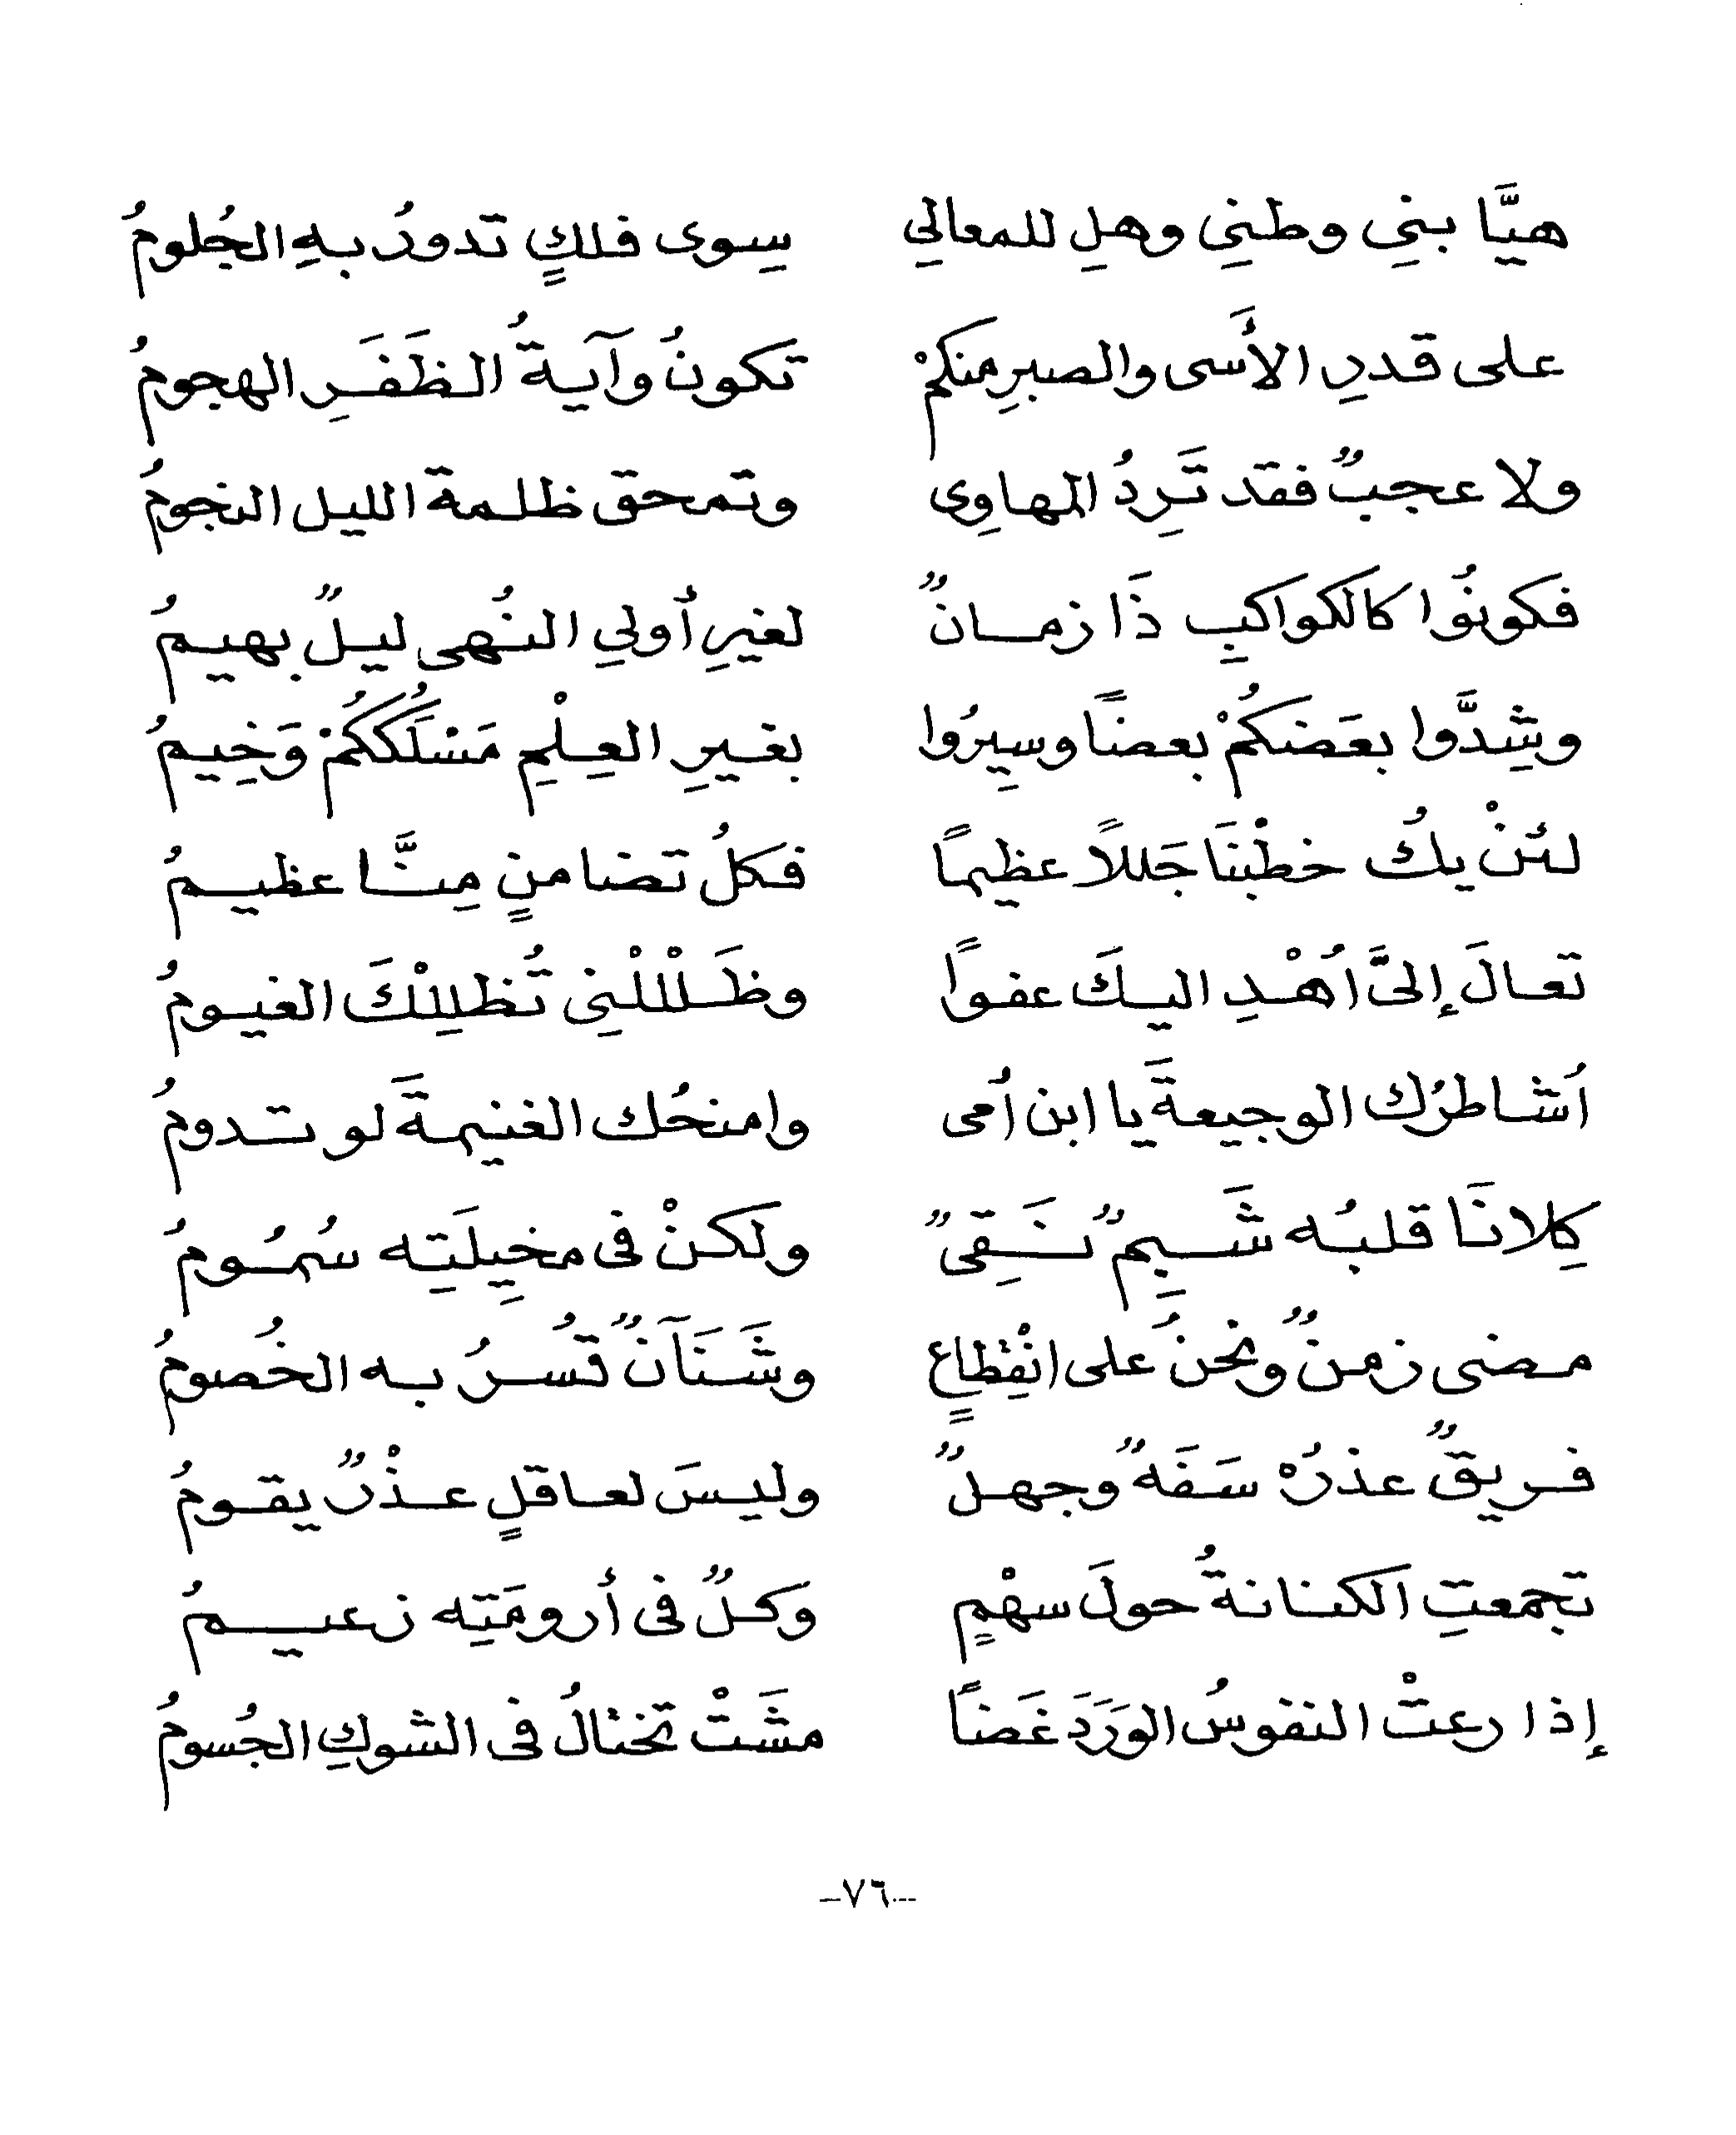 هيَّا بنِي وطنِي وهلِ للمعالِي سِوى فلكٍ تدورُ بهِ الجُلومُ
على قدرِ الأَسى والصبرِ منكمْ تكونُ وآيةُ الظَفَرِ الهجومُ
ولا عجبٌ فقد تَرِدُ المهاوِى وتمحق ظلمة الليل النجومُ
فكونُوا كالكواكبِ ذَا زمانٌ لغيرِ أولِي النُهى ليلٌ بهيمُ
وشِدَّوا بعَضكُمْ بعضًا وسِيرُوا بغيرِ العِلْمِ مَسْلَكُكُمْ وَخِيمُ
لئنْ يكُ خطْبنَا جَللاً عظيمًا فكلُ تضامنٍ مِنَّا عظيمُ
تعالَ إلىَّ اُهْدِ اليكَ عفوًا وظَلْلْنِى تُظلِلْكَ الغيومُ
اُشاطرُك الوجيعةَ يا ابن اُمى وامنحُك الغنيمةَ لو تدومُ
كِلانَا قلبُه شَبِمٌ نَقِىٌ ولكنْ فى مخيِلَتِه سُمُومُ
مضى زمنٌ ونحنُ على انْقِطاعٍ وشَنَآنٌ تُسرُ به الخُصومُ
فريقٌ عذرُهْ سَفَهٌ وجهلٌ وليسَ لعاقلٍ عذْرٌ يقومُ
تجمعتِ الكنانةُ حولَ سهْمٍ وَكلٌ فى أرومَتِه زعيمُ
إذا رعتْ النفوسُ الوَرَدَ غَضاً مشَتْ تختالُ فى الشوكِ الجُسومُ
-٧٦-